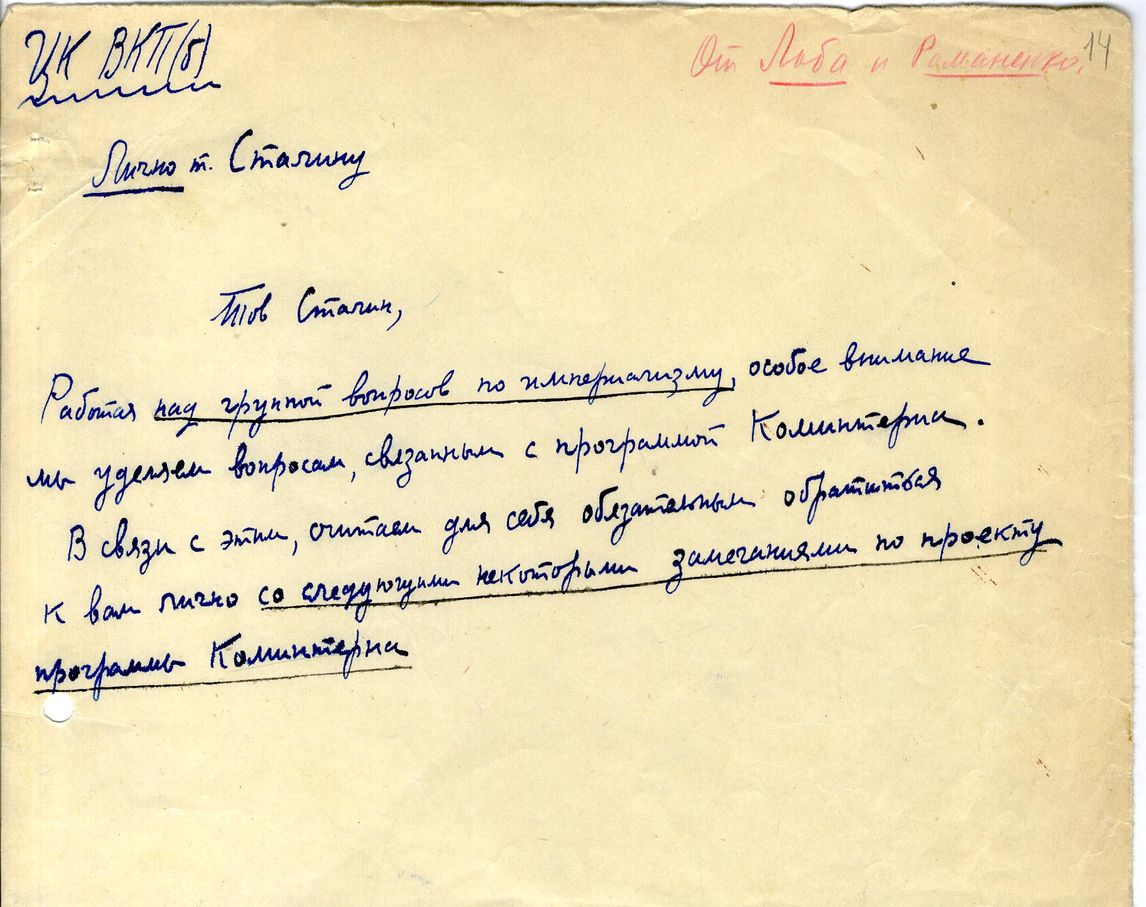 ЦК ВКП(б)
От Лоба и Романенко. 14
Лично т. Сталину
Тов Сталин,
Работая над группой вопросов по империализму, особое внимание
мы уделяем вопросам, связанным с программой Коминтерна.
В связи с этим, считаем для себя обязательным обратиться
к вам лично со следующими некоторыми замечаниями по проекту
программы Коминтерна